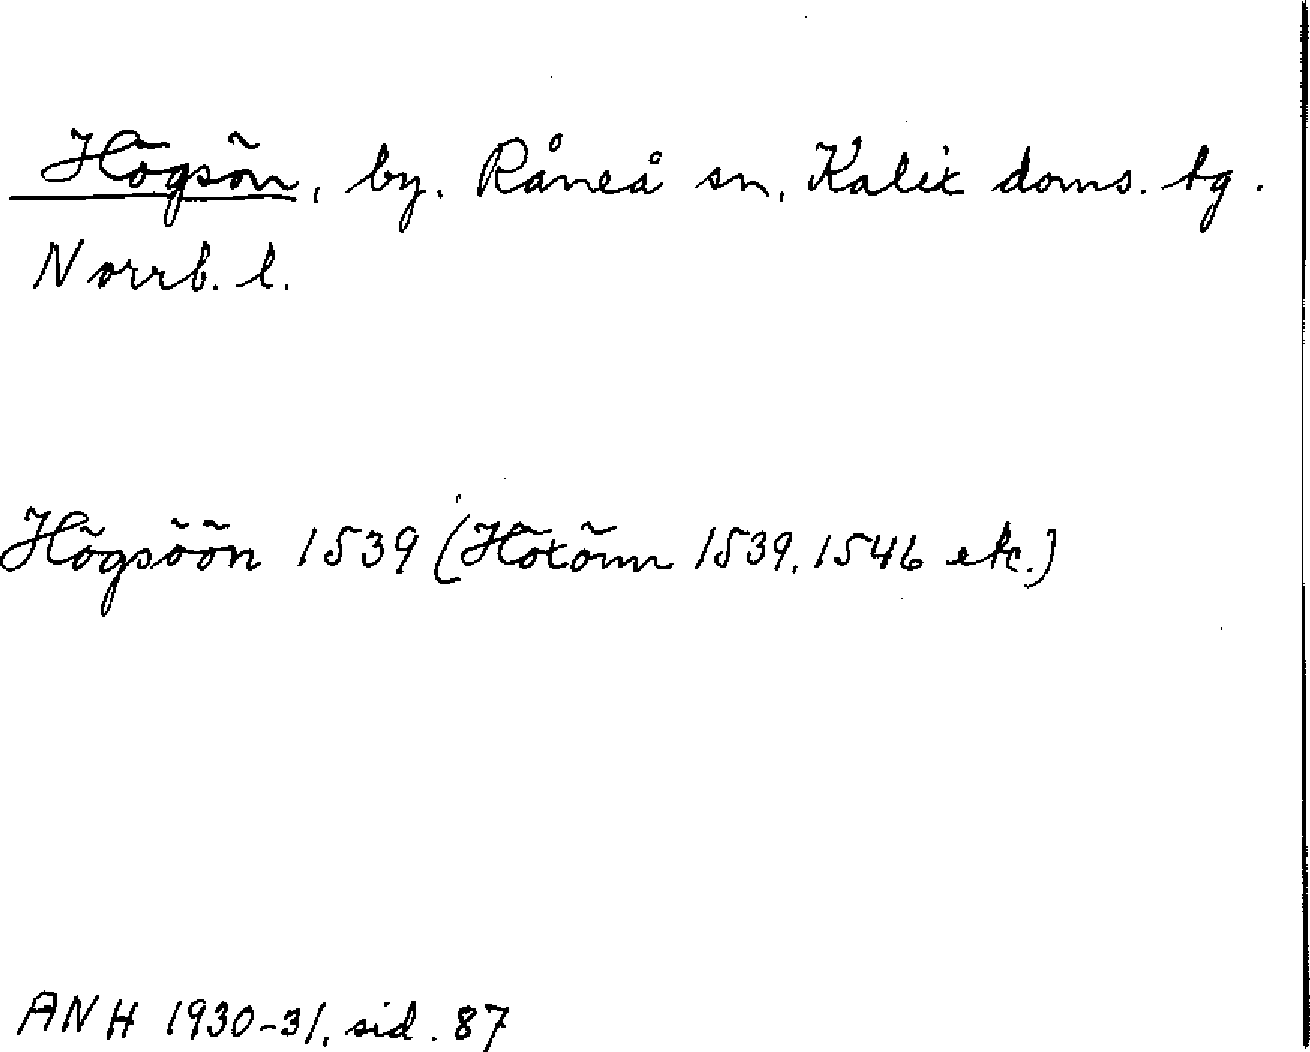 Högsön, by. Råneå sn, Kalix doms. tg.
Norrb. l.
Högsöön 1539 (Höxönn 1539, 1546 etc.)
ANH 1930-31, sid. 87